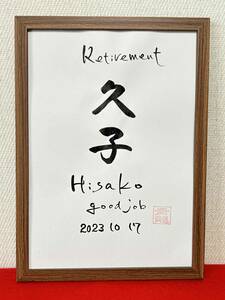 Retirement
久
子
Hisako
good job
2023 10 17